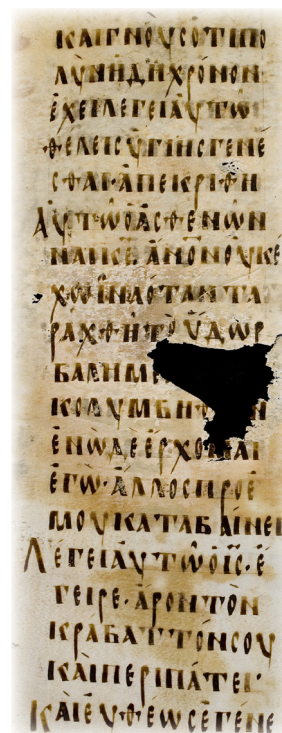 ΚΑΙΓΝΟΥϹΟΤΙΠΟ
ΛΥΝΗΔΗΧΡΟΝΟΝ
ΕΧΕΙΛΕΓΕΙΑΥΤΩ
ΘΕΛΕΙϹΥΓΙΗϹΓΕΝΕ
ϹΘΑΙ·ΑΠΕΚΡΙΘΗ
ΑΥΤΩΟΑϹΘΕΝΩΝ
ΝΑΙΚ̅Ε̅·ΑΝ̅Ο̅Ν̅ΟΥΚΕ
ΧΩΙΝΑΟΤΑΝΤΑ
ΡΑΧΘΗΤΟΥΔΩΡ
ΒΑΛΗΜ
ΚΟΛΥΜΒΗΘ Ν
ΕΝΩΔΕΕΡΧΟΜΑΙ
ΕΓΩ·ΑΛΛΟϹΠΡΟΕ
ΜΟΥΚΑΤΑΒΑΙΝΕΙ
ΛΕΓΕΙΑΥΤΩΟΙ̅Ϲ̅·Ε
ΓΕΙΡΕ·ΑΡΟΝΤΟΝ
ΚΡΑΒΑΤΤΟΝϹΟΥ
ΚΑΙΠΕΡΙΠΑΤΕΙ
ΚΑΙΕΥΘΕΩϹΕΓΕΝΕ